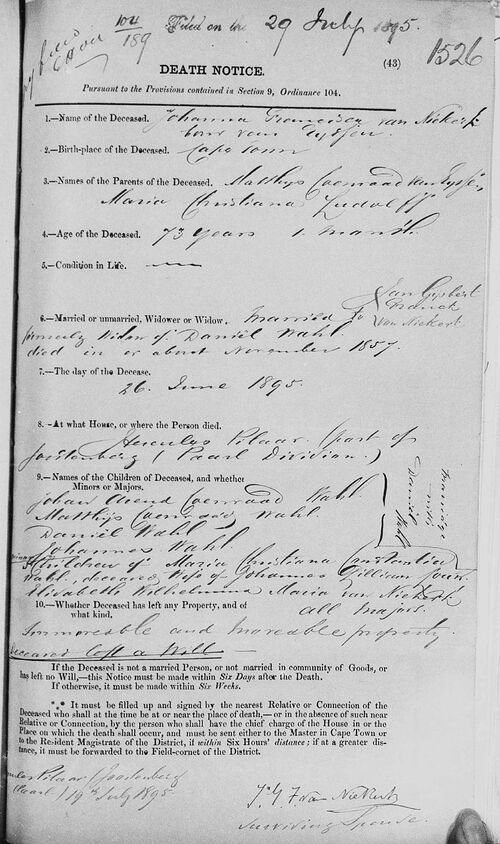 104/189 Filed on the 29 July 1895.
1526
DEATH NOTICE.
(43)
Pursuant to the Provisions contained in Section 9, Ordinance 104.
1.—Name of the Deceased. Johanna Francisca van Niekerk
born van Eyssen.
2.—Birth-place of the Deceased. Cape Town
3.—Names of the Parents of the Deceased. Matthys Coenraad van Eyssen,
Maria Christiana Ludolff
4.—Age of the Deceased. 73 years 1 month.
5.—Condition in Life. —
6.—Married or unmarried, Widower or Widow. Married to Jan Gysbert
Franck
van Niekerk
formerly Widow of Daniël Wahl
died in or about November 1857.
7.—The day of the Decease.
26. June 1895.
8.—At what House, or where the Person died.
Hercules Pilaar (part of
Joostenberg (Paarl Division.)
9.—Names of the Children of Deceased, and whether
Minors or Majors.
Johan Arend Coenraad Wahl.
Matthys Coenraad Wahl.
Daniel Wahl
Johannes Wahl.
marriage with Daniel Wahl
Children of Maria Christiana Constantia
Wahl, deceased, Wife of Johannes William Louw.
Elizabeth Wilhelmina Maria van Niekerk
all majors.
10.—Whether Deceased has left any Property, and of
what kind.
Immoveable and moveable property.
Deceased left a Will
If the Deceased is not a married Person, or not married in community of Goods, or
has left no Will,—this Notice must be made within Six Days after the Death.
If otherwise, it must be made within Six Weeks.
*** It must be filled up and signed by the nearest Relative or Connection of the
Deceased who shall at the time be at or near the place of death,—or in the absence of such near
Relative or Connection, by the person who shall have the chief charge of the House in or the
Place on which the death shall occur, and must be sent either to the Master in Cape Town or
to the Resident Magistrate of the District, if within Six Hours' distance; if at a greater dis-
tance, it must be forwarded to the Field-cornet of the District.
Pilaar (Joostenberg
(Paarl) 19th July 1895.
J. G. F van Niekerk
Surviving Spouse.